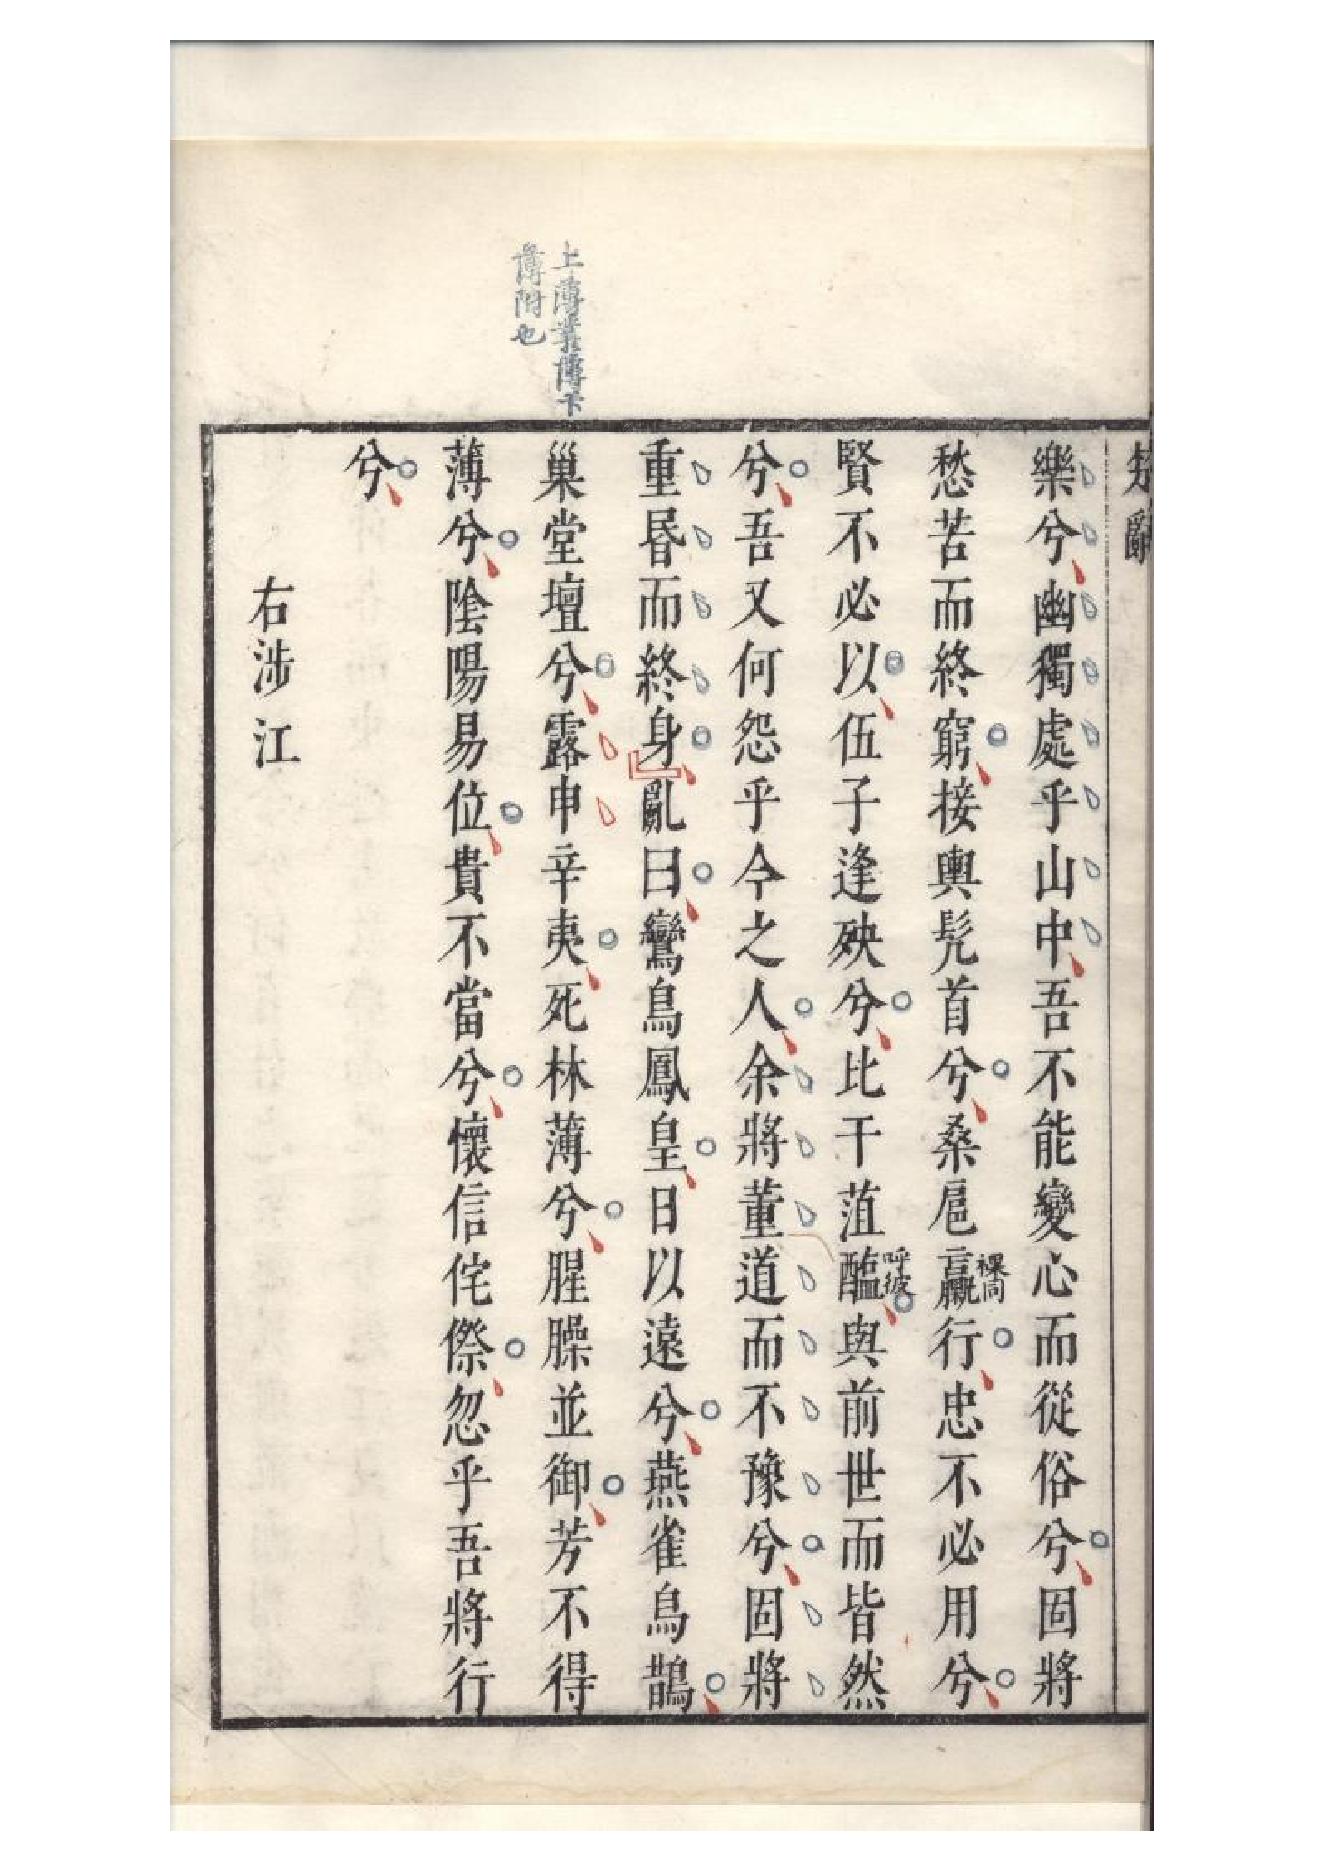 楚辭
樂兮幽獨處乎山中吾不能變心而從俗兮固將
愁苦而終窮接輿髠首兮桑扈臝裸同行忠不必用兮
賢不必以伍子逢殃兮比干菹醢呼彼與前世而皆然
兮吾又何怨乎今之人余將董道而不豫兮固將
重昏而終身亂曰鸞鳥鳳皇日以遠兮燕雀烏鵲
巢堂壇兮露申辛夷死林薄兮腥臊並御芳不得
薄兮陰陽易位貴不當兮懷信侘傺忽乎吾將行
兮
右涉江
上薄叢薄下
薄附也